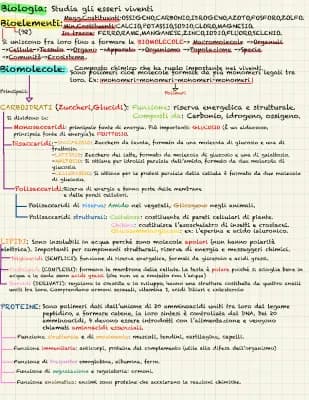 Biologia: Studia gli esseri viventi
Bioelementi: Magg.Costituenti:OSSIGENO,CARBONIO,IDROGENO,AZOTO,FOSFORO,ZOLFO.
Min.Costituenti:CALCIO,POTASSIO,SODIO,CLORO,MAGNESIO.
In tracce: FERRO,RAME,MANGANESE,ZINCO,IODIO,FLUORO,SELENIO.
Si uniscono tra loro fino a formare le BIOMOLECOLE→ Macromolecole →Organuli
→Cellule→Tessuto →Organo →Apparato →Organismo →Popolazione →Specie
→Comunità →Ecosistema.
Composto chimico che ha ruolo importante nei viventi.
Biomolecole: Sono polimeri cioè molecole formate da più monomeri legati tra
loro. Ex: monomeri-monomeri-monomeri-monomeri
Principali:
Polimeri
CARBOIDRATI (Zuccheri,Glucidi): Funzione: riserva energetica e strutturale.
Composti da: Carbonio, idrogeno, ossigeno.
Si dividono in:
Monosaccaridi: principale fonte di energia. Più importanti: GLUCOSIO (È un aldeosio,
principale fonte di energia) FRUTTOSIO.
Disaccaridi: Zucchero da tavola, formato da una molecola di glucosio e una di
fruttosio.
Zucchero del latte, formato da molecola di glucosio e una di galattosio.
Si ottiene per idrolisi parziale dell'amido, formato da due molecole di
glucosio.
Si ottiene per la protesi parziale della cellula è formato da due molecole
di glucosio.
Polisaccaridi: Riserva di energia e fanno parte delle membrane
e delle pareti cellulari.
Polisaccaridi di riserva: Amido nei vegetali, Glicogeno negli animali.
Polisaccaridi strutturali: Cellulosa: costituente di pareti cellulari di piante.
Chitina: costituisce l'esoscheletro di insetti e crostacei.
ex: l'eparina e acido ialuronico.
LIPIDI: Sono insolubili in acqua perché sono molecole apolari (non hanno polarità
elettrica). Importanti per componenti strutturali, riserva di energia e messaggeri chimici.
Trigliceridi (SEMPLICI): funzione di riserva energetica, formati da glicerolo e acidi grassi.
Fosfolipidi (COMPLESSI): formano la membrana delle cellule. La testa è polare perché si scioglie in
acqua e le code sono acidi grassi (che non va a contatto con l'acqua)
Steroidi (DERIVATI): regolano la crescita e lo sviluppo, hanno una struttura costituita da quattro anelli
uniti tra loro. Comprendono ormoni sessuali, vitamina D, acidi biliari e colesterolo
PROTEINE: Sono polimeri dati dall'unione di 20 amminoacidi uniti tra loro dal legame
peptidico, a formare catene, la loro sintesi è controllata dal DNA. Dei 20
amminoacidi, 9 devono essere introdotti con l'alimentazione e vengono
chiamati aminoacidi essenziali.
Funzione strutturale e di movimento: muscoli, tendini, cartilagine, capelli.
Funzione immunitaria: anticorpi, proteine del complemento (utile alla difesa dell'organismo)
Funzione di trasporto: emoglobina, albumina, ferro.
Funzione di segnalazione e regolatoria: ormoni.
Funzione enzimatica: enzimi sono proteine che accelerano le reazioni chimiche.